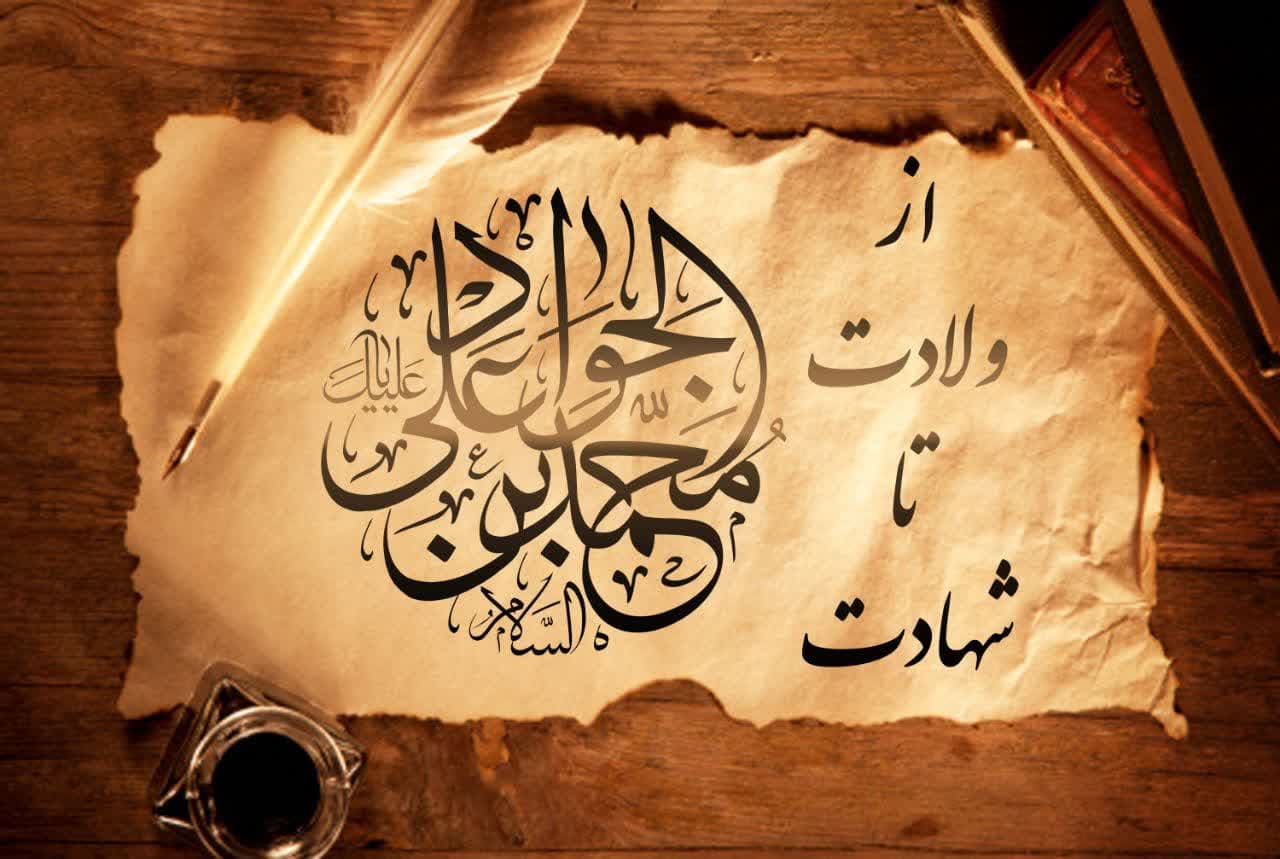 از
ولادت
تا
شهادت
محمد بن علی الجواد
علیه السلام